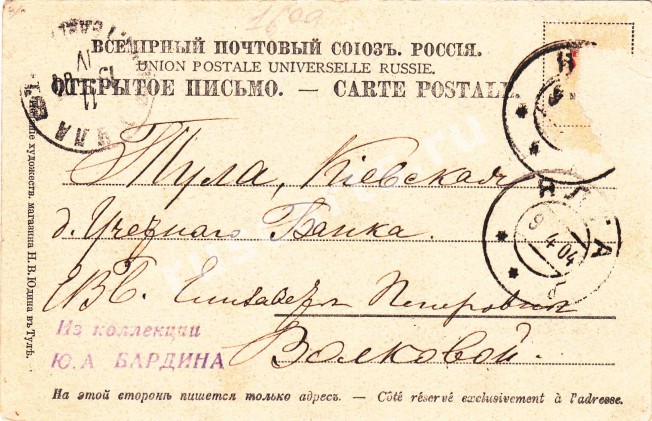 ВСЕМІРНЫЙ ПОЧТОВЫЙ СОЮЗЪ. РОССІЯ.
UNION POSTALE UNIVERSELLE RUSSIE.
ОТКРЫТОЕ ПИСЬМО. — CARTE POSTALE.
ТУЛА
ЯЛТА
9 4 04
Тула, Кіевская
д. Учетнаго Банка.
ЕВБ. Елисавета Петровна
Волковой.
Из коллекции
Ю.А БАРДИНА
На этой сторонѣ пишется только адресъ. — Côté réservé exclusivement à l'adresse.
художеств. магазина Н. В. Юдина въ Тулѣ.